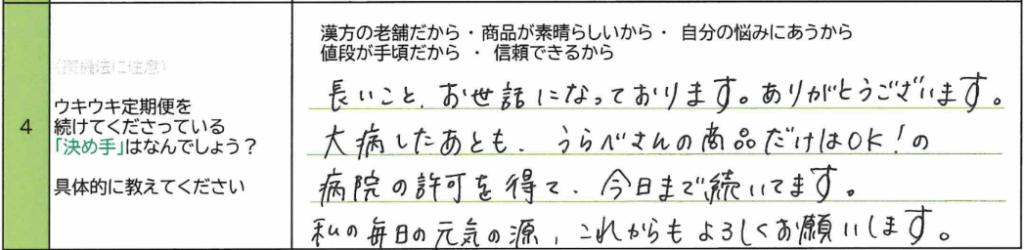 漢方の老舗だから・商品が素晴らしいから・ 自分の悩みにあうから
値段が手頃だから ・ 信頼できるから
(薬機法に注意)
4
ウキウキ定期便を
続けてくださっている
「決め手」はなんでしょう？
具体的に教えてください
長いこと、お世話になっております。ありがとうございます。
大病したあとも、うらべさんの商品だけはOK!の
病院の許可を得て、今日まで続いてます。
私の毎日の元気の源、これからもよろしくお願いします。